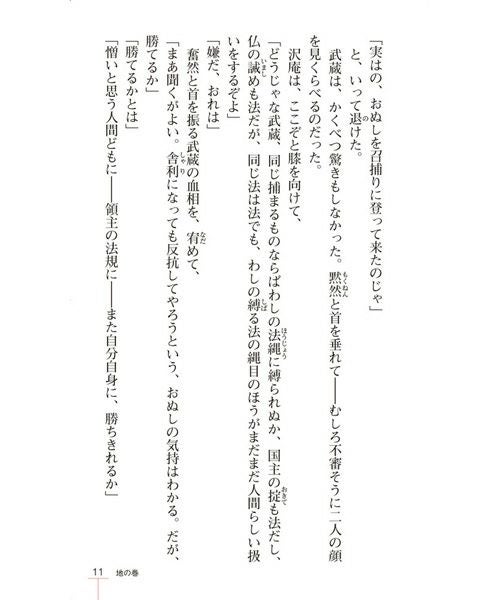 「実はの、おぬしを召捕りに登って来たのじゃ」
と、いって退けた。
武蔵は、かくべつ驚きもしなかった。黙然と首を垂れて——むしろ不審そうに二人の顔
を見くらべるのだった。
沢庵は、ここぞと膝を向けて、
「どうじゃな武蔵、同じ捕まるものならばわしの法縄に縛られぬか、国主の掟も法だし、
仏の誡めも法だが、同じ法は法でも、わしの縛る法の縄目のほうがまだまだ人間らしい扱
いをするぞよ」
「嫌だ、おれは」
奮然と首を振る武蔵の血相を、宥めて、
「まあ聞くがよい。舎利になっても反抗してやろうという、おぬしの気持はわかる。だが、
勝てるか」
「勝てるかとは」
「憎いと思う人間どもに——領主の法規に——また自分自身に、勝ちきれるか」
11 地の巻